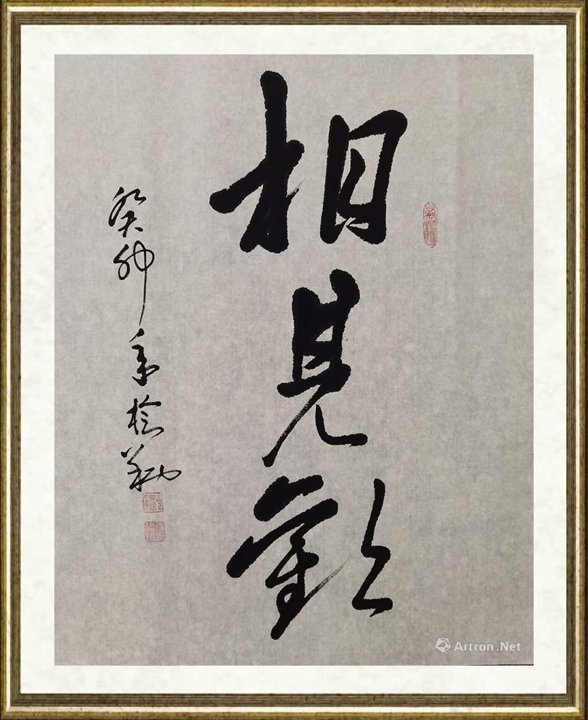 相見歡
癸卯年
Artron.Net